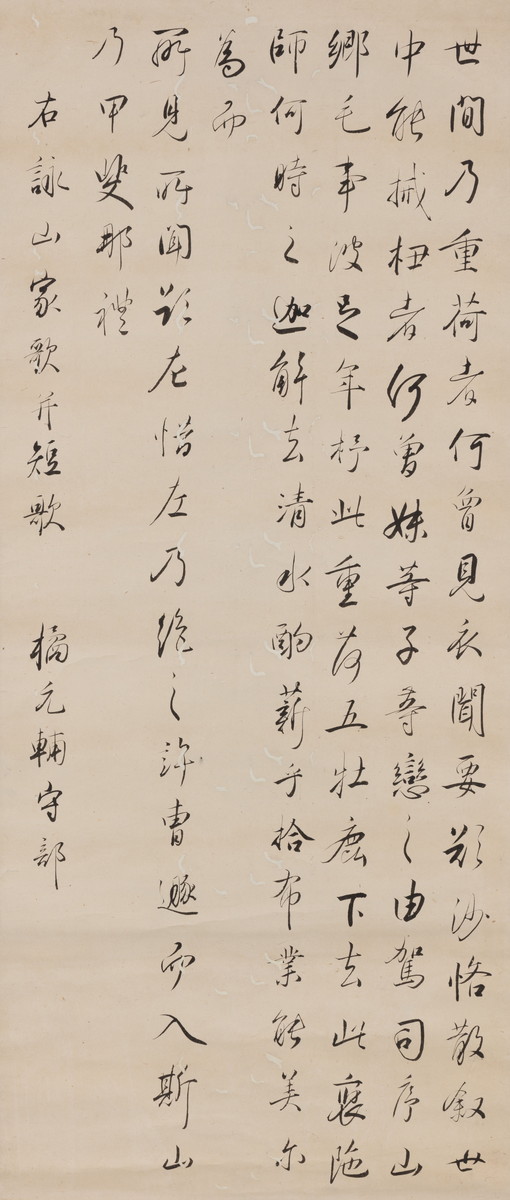 世間乃重荷者何曾見衣聞要欲沙悋散叙世
中能械杻者何曾妹等子等戀之由駕司序山
郷毛事波足年杼此重荷五牡鹿下去此褒陁
師何時之迦解去清水酌薪乎拾布業能美尓
為而
所見所聞欲左惜左乃絶之許曹遯而入斯山
乃甲斐那禮
右詠山家歌并短歌 橘元輔守部